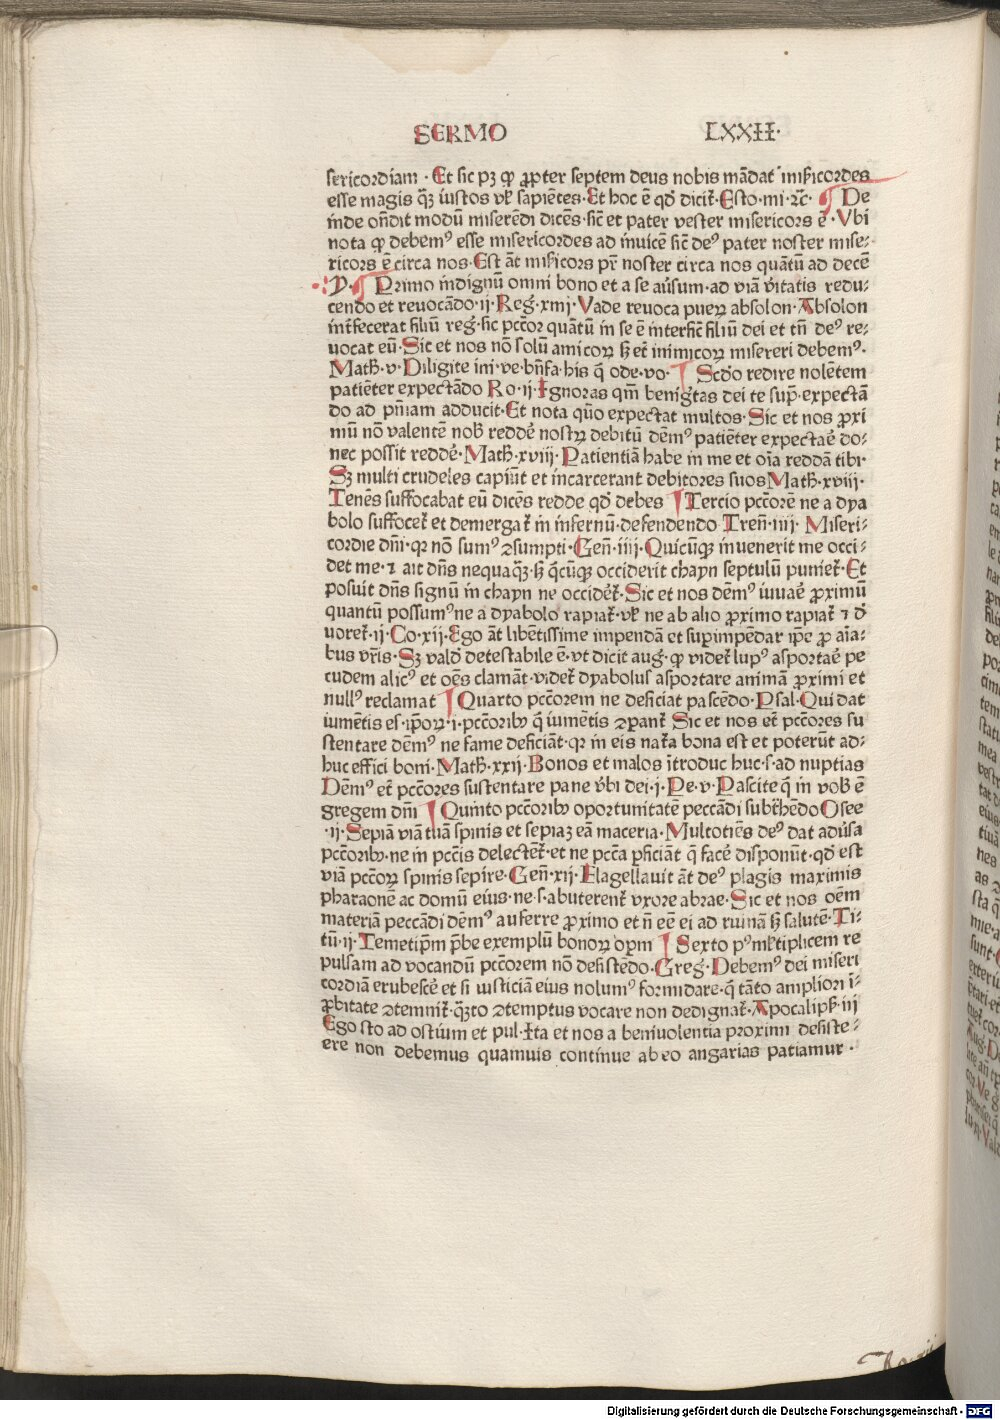 SERMO LXXII·
sericordiam · Et sic pꝫ ꝙ ꝓpter septem deus nobis mādat miẜicordes
esse magis qᷓꝫ iustos vl̕ sapiētes· Et hoc ē qd̕ dicit᷑· Esto· mi· ⁊c̄· De
inde on̄dit modū miserēdi dicēs· sic̄ et pater vester misericors ē· Vbi
nota ꝙ debemꝰ esse misericordes ad inuicē sic̄ deꝰ pater noster mise⸗
ricors ē circa nos· Est āt miẜicors pr̄ noster circa nos quātū ad decē
P· Primo indignū omni bono et a se au̕sum· ad viā v̕itatis redu⸗
cendo et reuocādo· ij· Reg̕· xiiij· Vade reuoca pueꝝ absolon· Absolon
int̕fecerat filiū reg̕· sic pctōr quātū in se ē int̕ficit filiū dei et tn̄ deꝰ re⸗
uocat eū· Sic et nos nō solū amicoꝝ sꝫ et̕ inimicoꝝ misereri debemꝰ·
Math̕· v· Diligite ini· ve· bn̄fa· his q̄ ode· vo· Sc̄do redire nolētem
patiēter expectādo Ro· ij· Ignoras qm̄ benig̕tas dei te sup̄· expectā
do ad pn̄iam adducit· Et nota quō expectat multos· Sic et nos ꝓxi
mū nō valentē nob̕ redde̕ nostꝝ debitū dēmꝰ patiēter expectae̕ do⸗
nec possit redde̕· Math̕· xviij· Patientiā habe in me et oīa reddā tibi·
Sꝫ multi crudeles capiūt et incarcerant debitores suos Math̕· xviij·
Tenēs suffocabat eū dicēs redde qd̕ debes Tercio pctōrē ne a dya
bolo suffocet᷑ et demergat᷑ in infernū· defendendo Tren̄· iiij· Miseri⸗
cordie dn̄i· qr nō sumꝰ ꝯsumpti· Gen̄· iiij· Quicūqꝫ inuenerit me occi⸗
det me· ⁊ ait dn̄s nequaqᷓꝫ· sꝫ q̄cūqꝫ occiderit chayn septulū puniet᷑· Et
posuit dn̄s signū in chayn ne occidet᷑· Sic et nos dēmꝰ iuuae̕ ꝓximū
quantū possumꝰ ne a dyabolo rapiat᷑· vl̕ ne ab alio ꝓximo rapiat᷑ ⁊ d̕
uoret᷑· ij· Co· xij· Ego āt libētissime impendā et suꝑimpēdar ip̄e ꝓ aīa⸗
bus vr̄is· Sꝫ vald̕ detestabile ē· vt dicit aug̕· ꝙ videt᷑ lupꝰ asportae̕ pe
cudem alicꝰ et oēs clamāt· videt᷑ dyabolus asportare animā ꝓximi et
nullꝰ reclamat Quarto pctōrem ne deficiat pascēdo· Psal· Qui dat
iumētis es· ip̄oꝝ· i· pctōribꝫ q̄ iumētis ꝯpant᷑ Sic et nos et̕ pctōres su
stentare dēmꝰ ne fame deficiāt· qr in eis nat̕a bona est et poterūt ad⸗
huc effici boni· Math̕· xxij· Bonos et malos ītroduc huc· s· ad nuptias
Dēmꝰ et̕ pctōres sustentare pane v̕bi dei· j· Pe· v· Pascite q̄ in vob̕ ē
gregem dn̄i Quinto pctōribꝫ oportunitatē peccādi subt̕hēdo Osee
·ij· Sepiā viā tuā spinis et sepiaꝫ eā maceria· Multotiēs deꝰ dat adu̕sa
pctōribꝫ· ne in pctīs delectēt᷑· et ne pctā ꝑficiāt q̄ face̕ disponūt· qd̕ est
viā pctōꝝ spinis sepire· Gen̄· xij· Flagellauit āt deꝰ plagis maximis
pharaonē ac domū eius· ne· s· abuterent᷑ vxore abrae· Sic et nos oēm
materiā peccādi dēmꝰ auferre ꝓximo et n̄ eē ei ad ruinā sꝫ salutē· Ti⸗
tū· ij· Temetip̄m p̄be exemplū bonoꝝ oꝑm Sexto pꝰ ml̕tiplicem re
pulsam ad vocandū pctōrem nō desistēdo· Greg̕· Debemꝰ dei miseri
cordiā erubesce̕ et si iusticiā eius nolumꝰ formidare· q̄ tāto ampliori ī⸗
ꝓbitate ꝯtemnit᷑· qᷓꝫto ꝯtemptus vocare non dedignat᷑· Apocalipẜ· iij
Ego sto ad ostium et pul· Ita et nos a beniuolentia proximi desiste⸗
ere non debemus quamuis continue ab eo angarias patiamur·
Digitalisierung gefördert durch die Deutsche Forschungsgemeinschaft - DFG